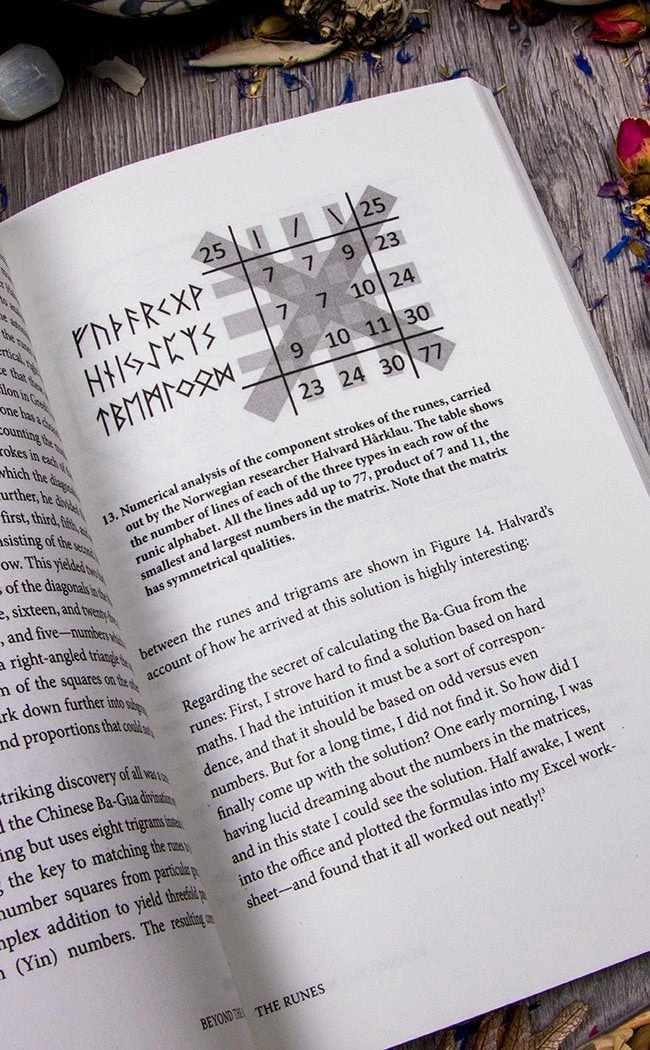 vertical,
the rune
ce that these
silon in Greek
one has a
counting the
rokes in each of
which the
further, he divided
first, third, fifth, and
consisting of the second,
row. This yielded two
s of the diagonals in the
e, sixteen, and twenty-five,
, and five—numbers
a right-angled triangle the
m of the squares on the
ark down further into
nd proportions that could
striking discovery of all was a
d the Chinese Ba-Gua divination
ing but uses eight trigrams instead
g the key to matching the runes
number squares from particular
mplex addition to yield threefold
n (Yin) numbers. The resulting
BEYOND THE
25 | / \ 25
ᚠᚢᚦᚨᚱᚲᚷᚹ 7 7 9 23
ᚺᚾᛁᛃᛇᛈᛉᛊ 7 7 10 24
ᛏᛒᛖᛗᛚᛜᛟᛞ 9 10 11 30
23 24 30 77
13. Numerical analysis of the component strokes of the runes, carried
out by the Norwegian researcher Halvard Hårklau. The table shows
the number of lines of each of the three types in each row of the
runic alphabet. All the lines add up to 77, product of 7 and 11, the
smallest and largest numbers in the matrix. Note that the matrix
has symmetrical qualities.
between the runes and trigrams are shown in Figure 14. Halvard's
account of how he arrived at this solution is highly interesting:
Regarding the secret of calculating the Ba-Gua from the
runes: First, I strove hard to find a solution based on hard
maths. I had the intuition it must be a sort of correspon-
dence, and that it should be based on odd versus even
numbers. But for a long time, I did not find it. So how did I
finally come up with the solution? One early morning, I was
having lucid dreaming about the numbers in the matrices,
and in this state I could see the solution. Half awake, I went
into the office and plotted the formulas into my Excel work-
sheet—and found that it all worked out neatly!³
THE RUNES